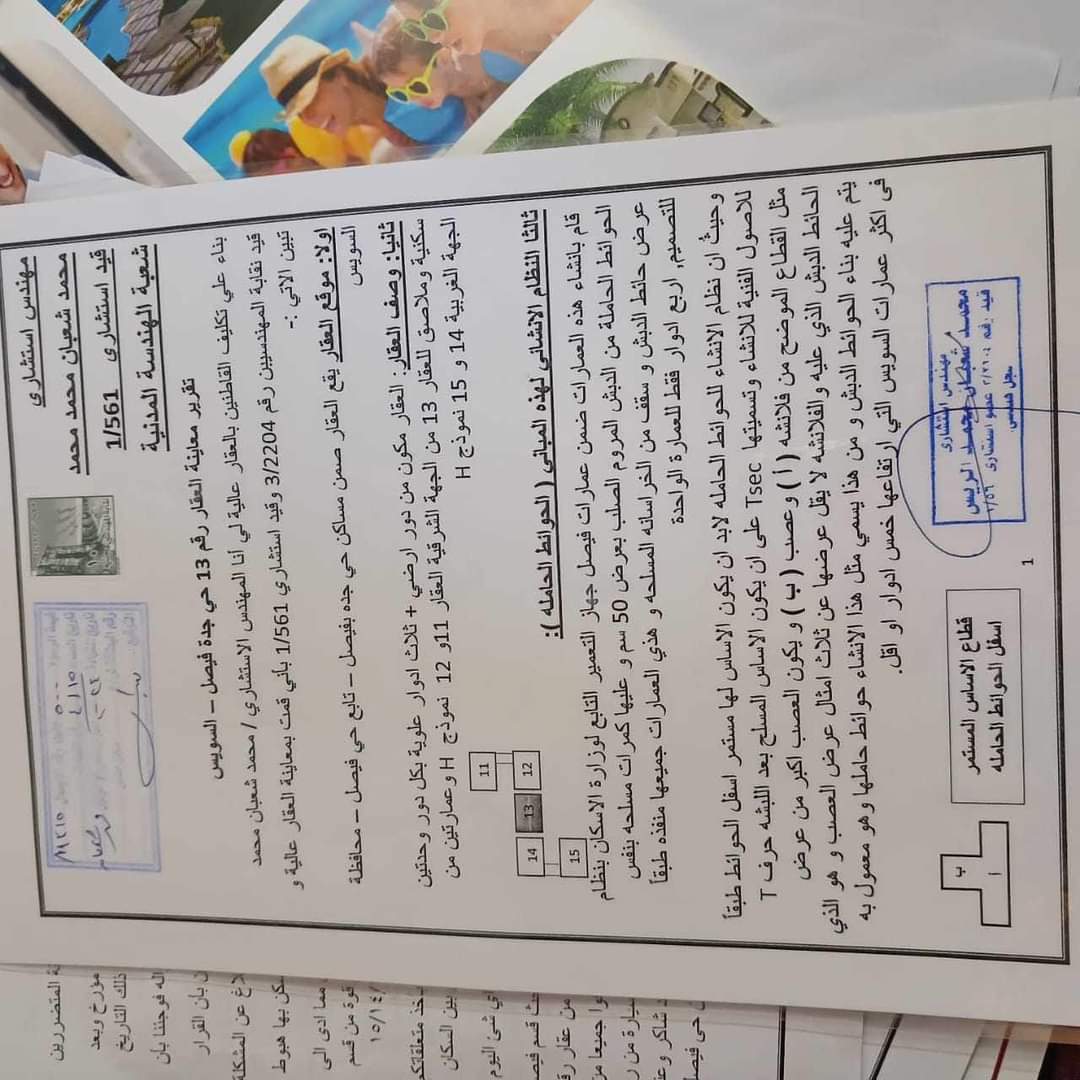 مهندس استشاري
محمد شعبان محمد محمد
قيد استشاري 1/561
شعبة الهندسة المدنية
تقرير معاينة العقار رقم 13 حي جدة فيصل – السويس
بناء علي تكليف القاطنين بالعقار عالية لي أنا المهندس الاستشاري / محمد شعبان محمد
قيد نقابة المهندسيين رقم 3/2204 وقيد استشاري 1/561 باني قمت بمعاينة العقار عالية و
تبين الاتي :-
اولا: موقع العقار يقع العقار ضمن مساكن حي جده بفيصل – تابع حي فيصل – محافظة
السويس
ثانيا: وصف العقار: العقار مكون من دور ارضي + ثلاث ادوار علوية بكل دور وحدتين
سكنية وملاصق للعقار 13 من الجهة الشرقية العقار 11و 12 نموذج H و عمارتين من
الجهة الغربية 14 و 15 نموذج H
11
12
13
14
15
ثالثا النظام الانشائى لهذه المبانى ( الحوائط الحامله ):
قام بانشاء هذه العمارات ضمن عمارات فيصل جهاز التعمير التابع لوزارة الاسكان بنظام
الحوائط الحاملة من الدبش المروم الصلب بعرض 50 سم و عليها كمرات مسلحه بنفس
عرض حائط الدبش و سقف من الخرسانه المسلحه و هذي العمارات جميعها منفذه طبقاً
للتصميم, اربع ادوار فقط للعمارة الواحدة
وحيثُ ان نظام الانشاء للحوائط الحامله لابد ان يكون الاساس لها مستمر اسفل الحوائط طبقاً
للاصول الفنية للانشاء وتسميتها Tsec على ان يكون الاساس المسلح بعد اللبشه حرف T
مثل القطاع الموضح من فلانشه ( أ ) وعصب ( ب ) و يكون العصب اكبر من عرض
الحائط الدبش الذي عليه و الفلانشه لا يقل عرضها عن ثلاث امثال عرض العصب و هو الذي
يتم عليه بناء الحوائط الدبش و من هذا يسمي مثل هذا الانشاء حوائط حاملها وهو معمول به
فى اكثر عمارات السويس التي ارتفاعها خمس ادوار او اقل.
ب
أ
قطاع الاساس المستمر
اسفل الحوائط الحامله
مهندس استشارى
محمد شعبان محمد الريس
سجل هندسى
1